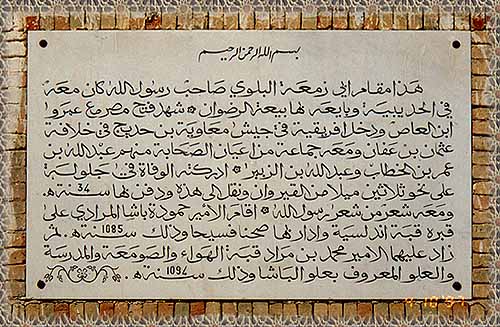 بسم الله الرحمن الرحيم
هذا مقام ابي زمعة البلوي صاحب رسول الله كان معه
في الحديبية وبايعه بها بيعة الرضوان * شهد فتح مصر مع عمرو
ابن العاص ودخل افريقية في جيش معاوية بن حديج في خلافة
عثمان بن عفان ومعه جماعة من اعيان الصحابة منهم عبد الله بن
عمر بن الخطاب وعبد الله بن الزبير * ادركته الوفاة في جلولة
على نحو ثلاثين ميلا من القيروان ونقل الى هذه ودفن بها سنة 34 هـ
ومعه شعر من شعر رسول الله * اقام الامير حمودة باشا المرادي على
قبره قبة اندلسية وادار بها صحنا فسيحا وذلك سنة 1085 هـ. ثم
زاد عليهما الامير محمد بن مراد قبة الهواء والصومعة والمدرسة
والعلو المعروف بعلو الباشا وذلك سنة 1097 هـ.